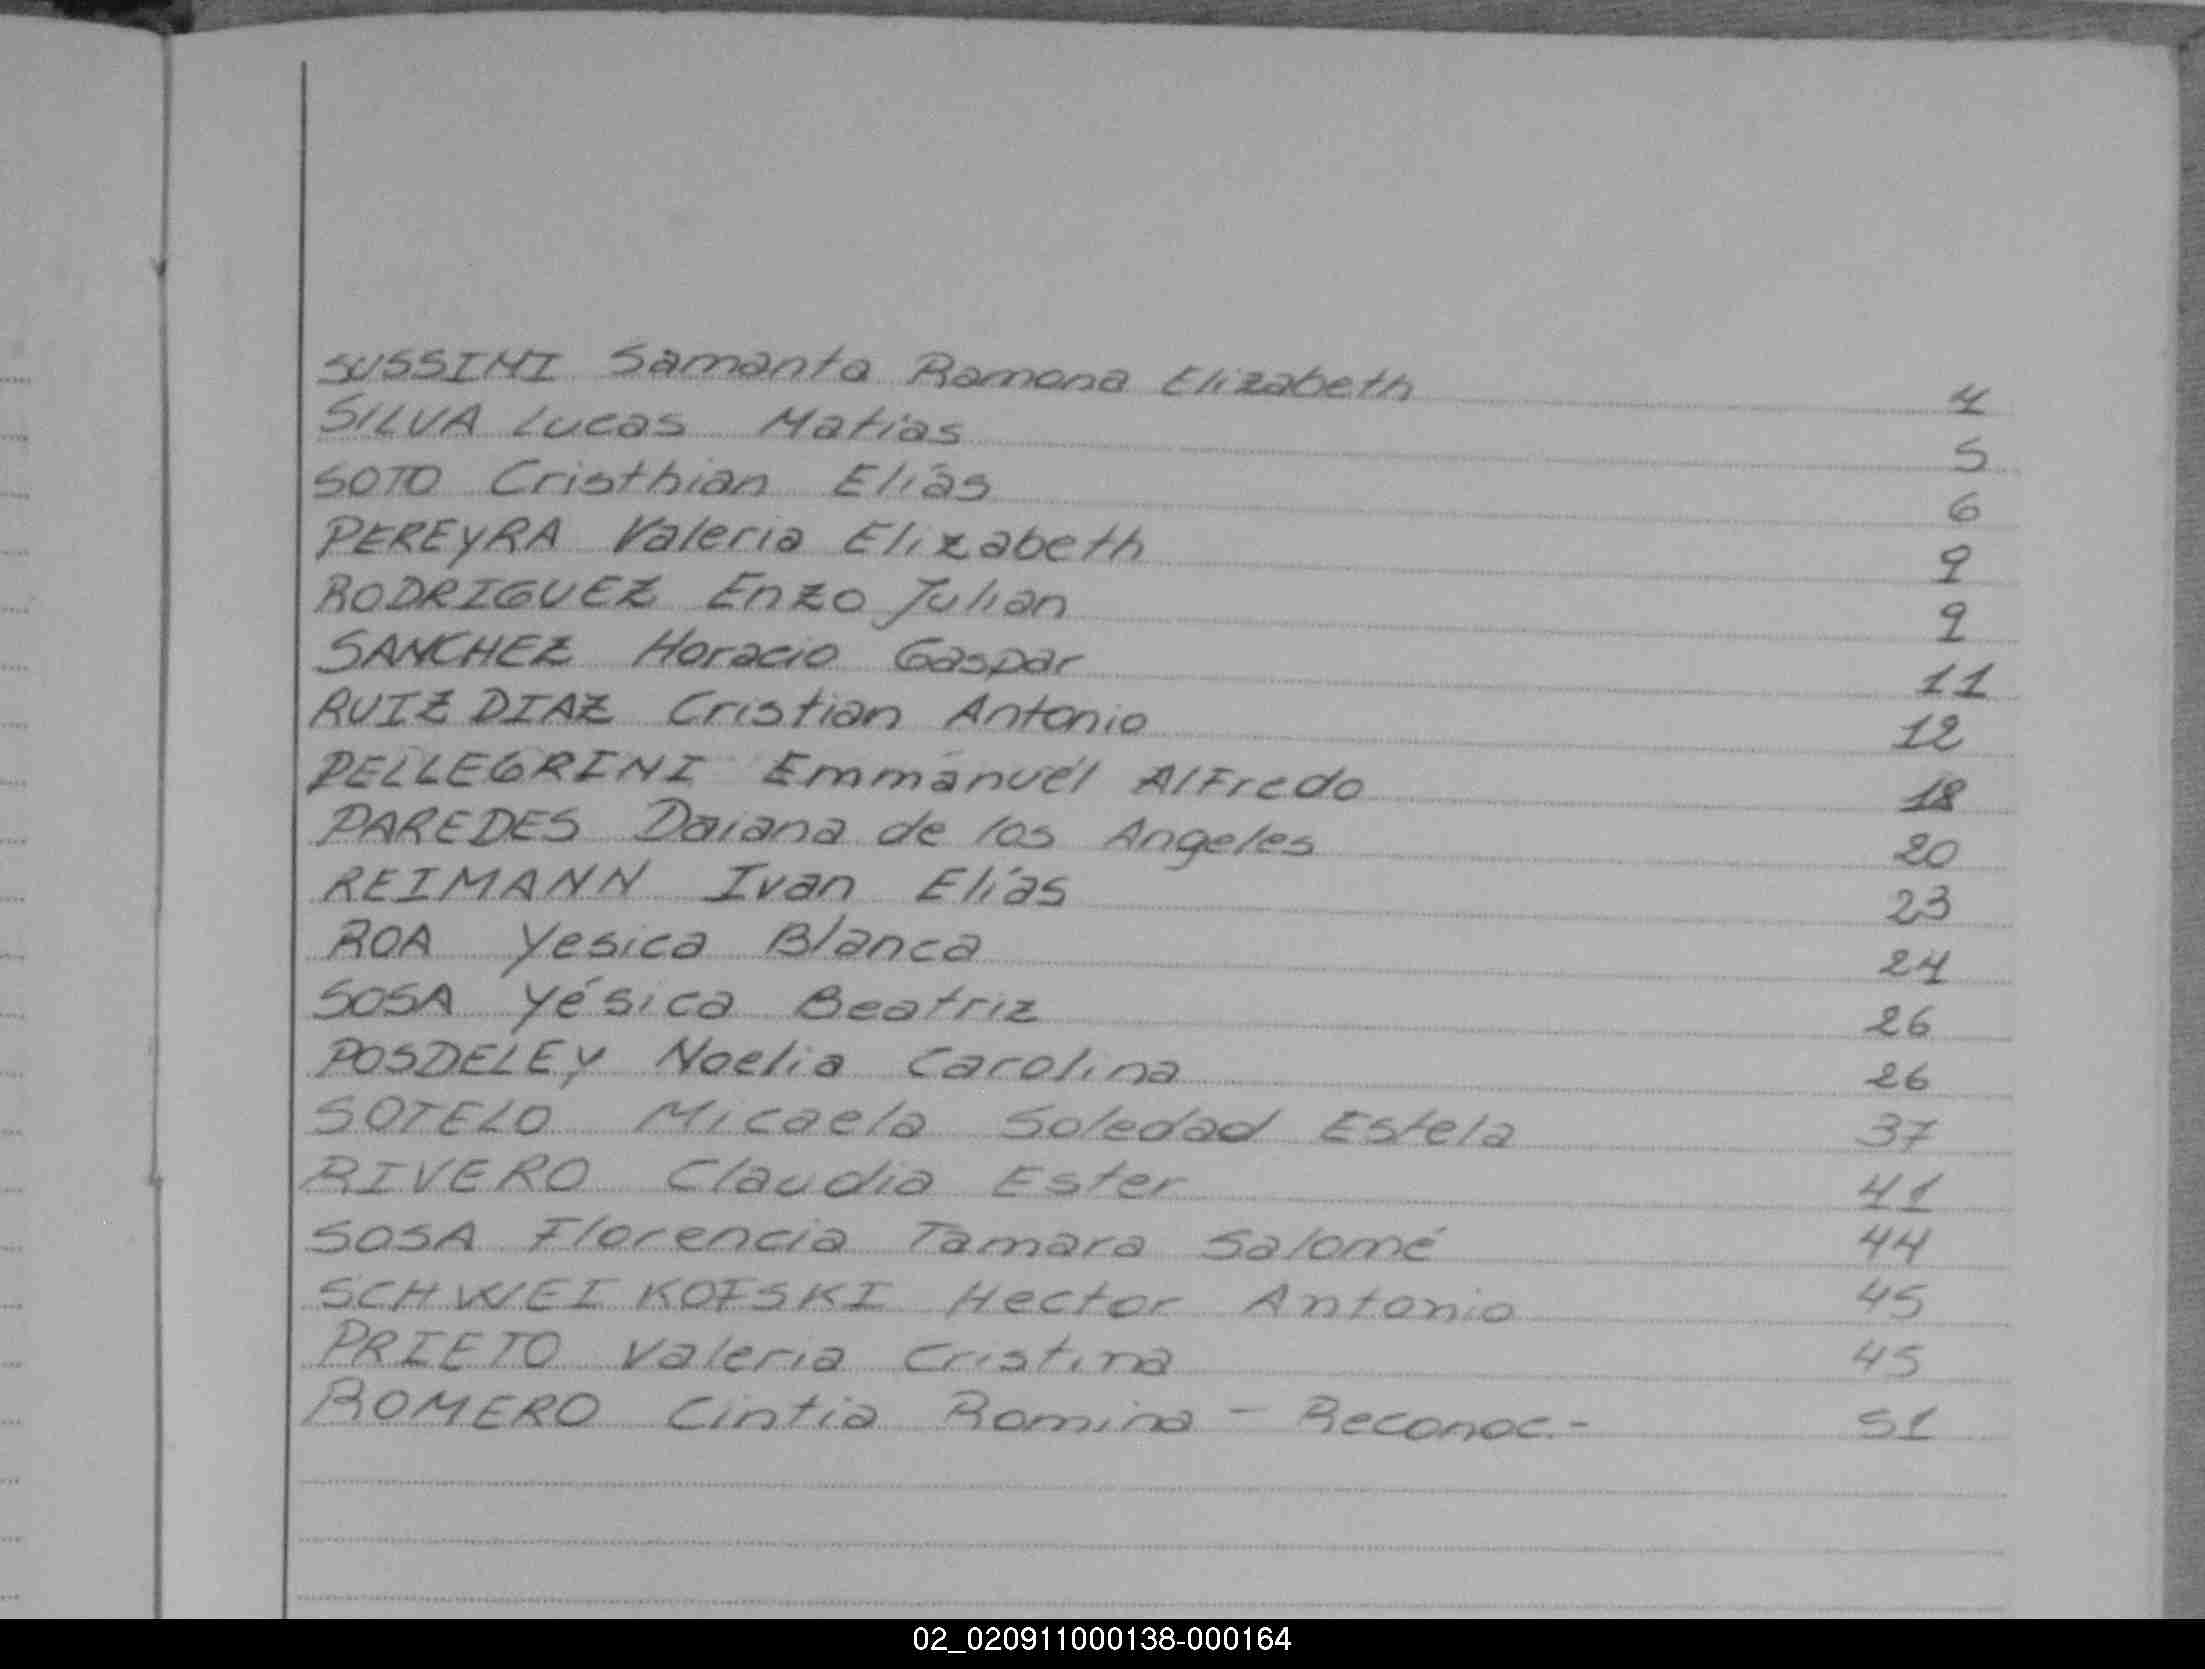 SUSSINI Samanta Ramona Elizabeth 4
SILVA Lucas Matias 5
SOTO Cristhian Elías 6
PEREYRA Valeria Elizabeth 9
RODRIGUEZ Enzo Julian 9
SANCHEZ Horacio Gaspar 11
RUIZ DIAZ Cristian Antonio 12
PELLEGRINI Emmanuel Alfredo 18
PAREDES Daiana de los Angeles 20
REIMANN Ivan Elías 23
ROA Yesica Blanca 24
SOSA Yésica Beatriz 26
POSDELEY Noelia Carolina 26
SOTELO Micaela Soledad Estela 37
RIVERO Claudia Ester 41
SOSA Florencia Tamara Salomé 44
SCHWEIKOFSKI Hector Antonio 45
PRIETO Valeria Cristina 45
ROMERO Cintia Romina - Reconoc.- 51
02_020911000138-000164